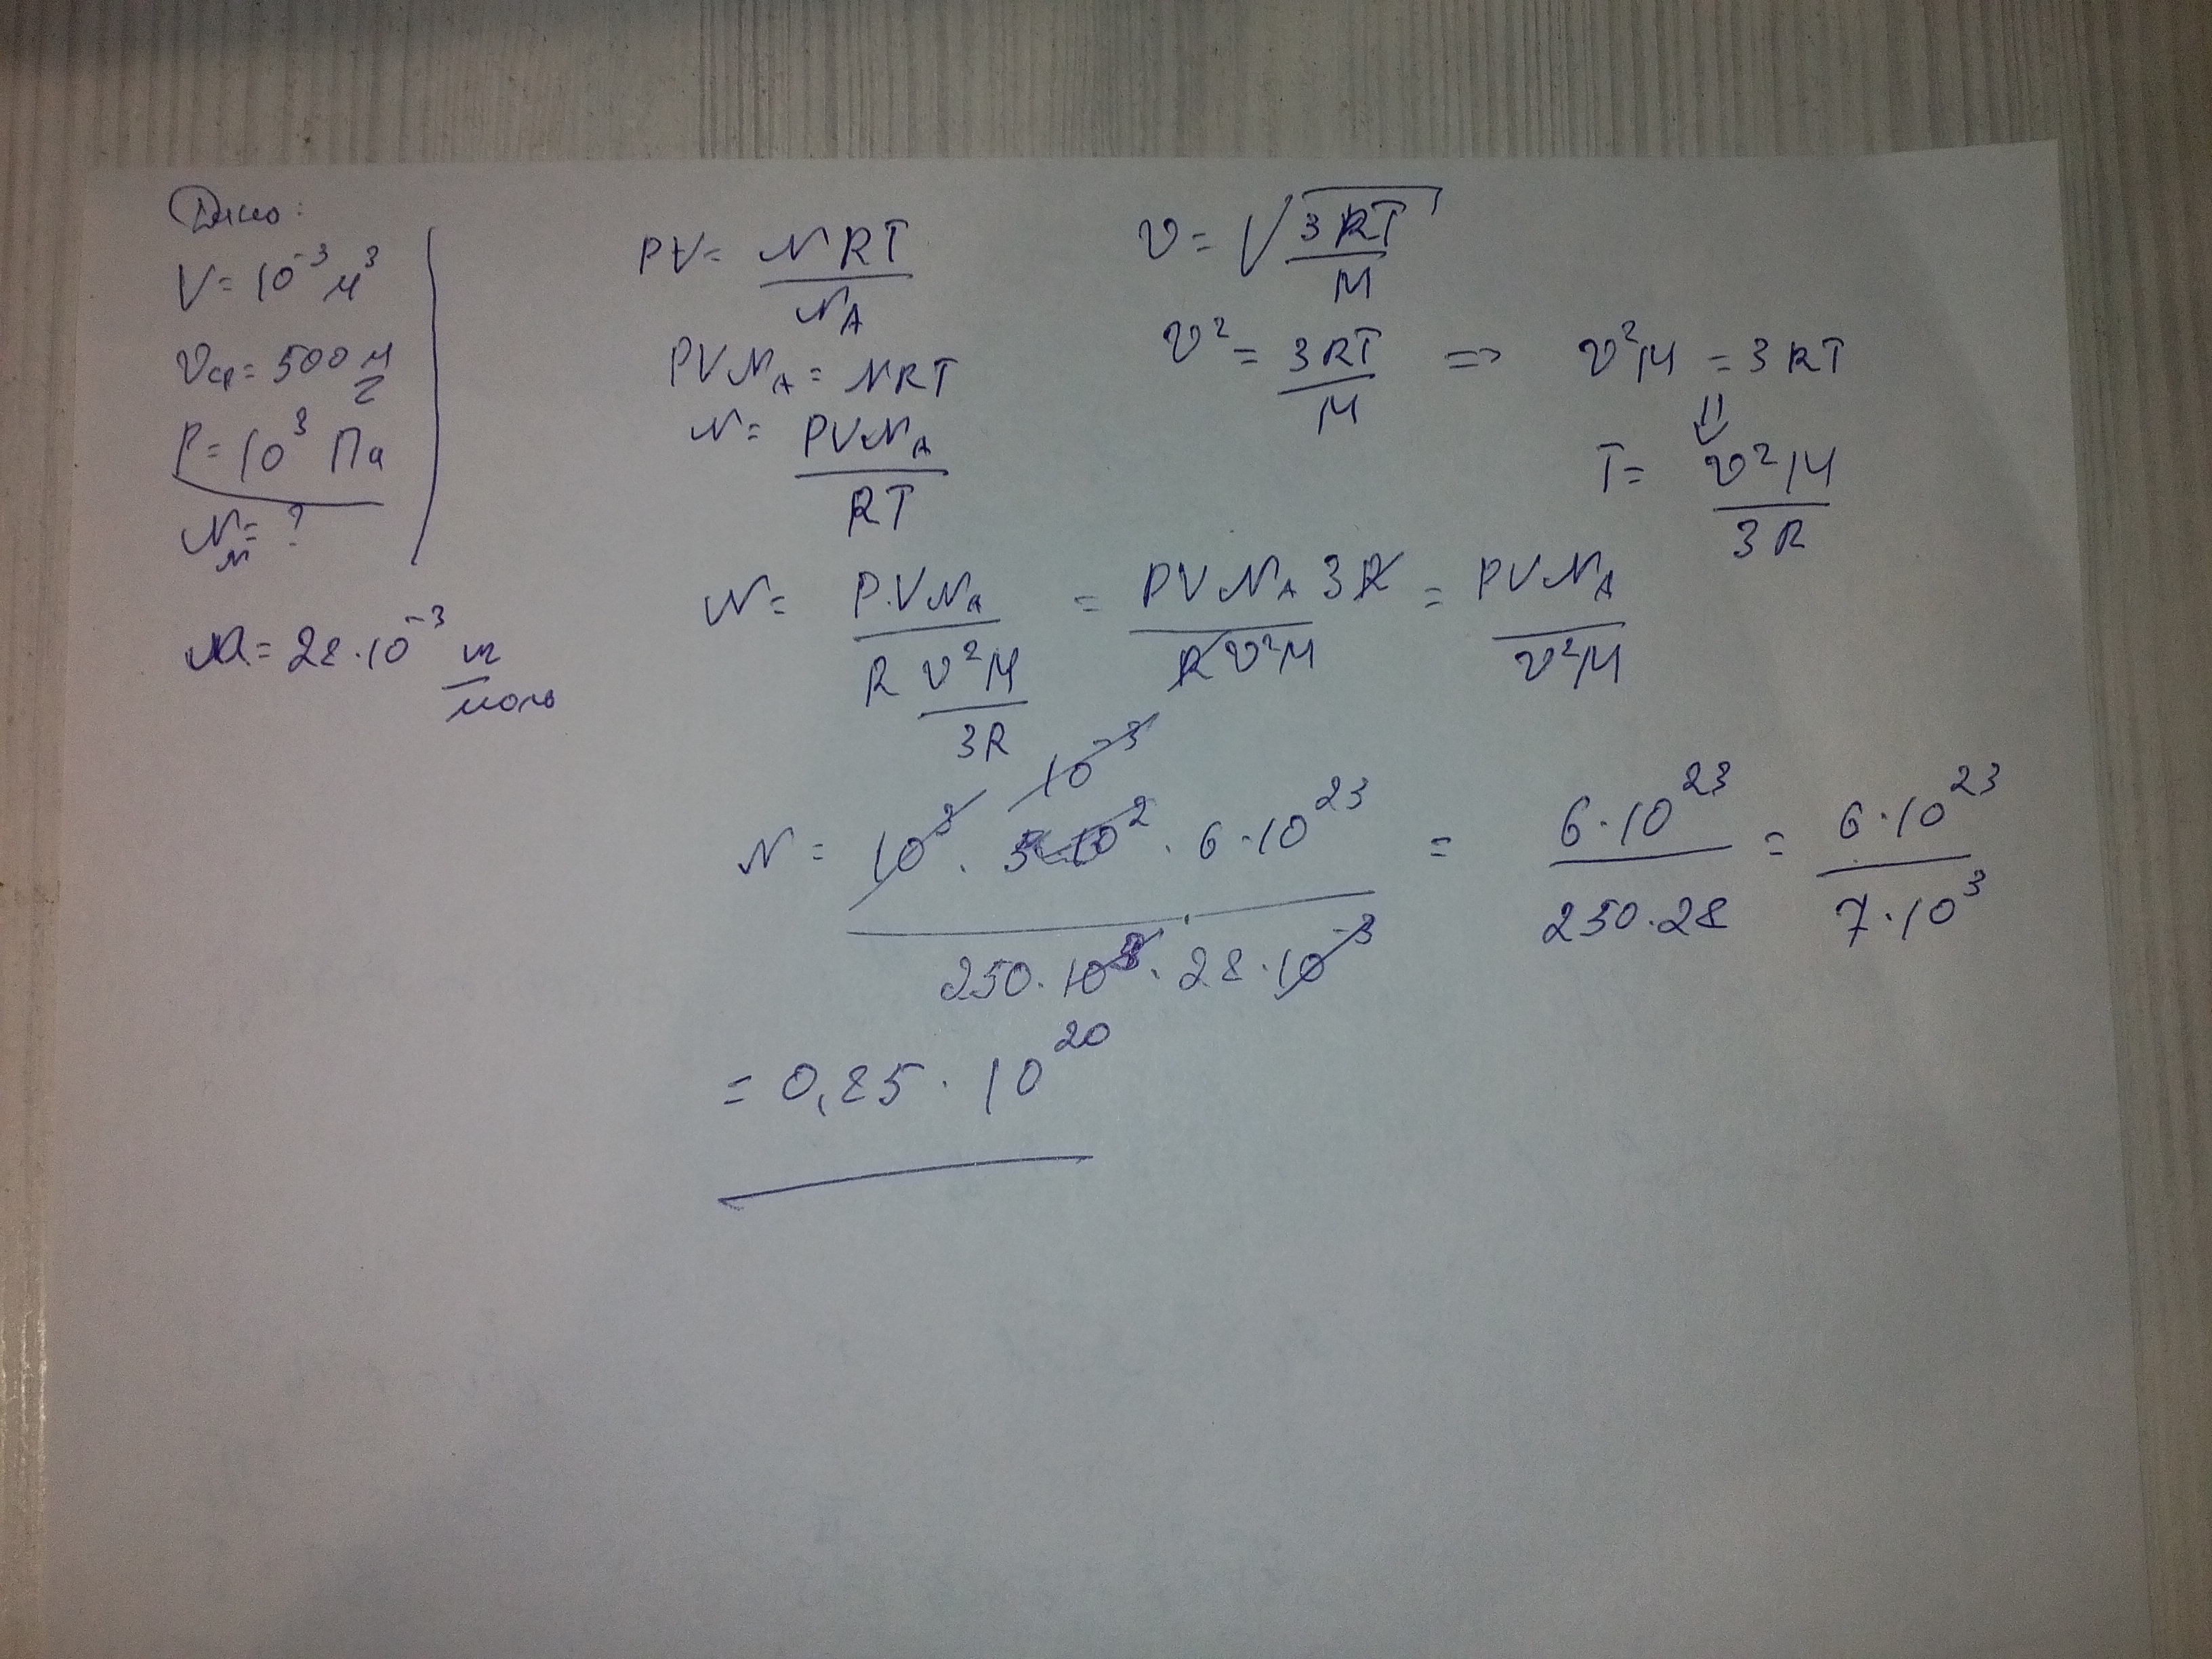 Дано:
V = 10⁻³ м³
υср = 500 м/с
P = 10³ Па
N_N = ?
M = 28·10⁻³ кг/моль
PV = NRT/N_A
PVN_A = NRT
N = PVN_A/RT
υ = √(3RT/M)
υ² = 3RT/M => υ²M = 3RT
⇓
T = υ²M/3R
N = P·VN_A/(R υ²M/3R) = PVN_A 3R/(Rυ²M) = PVN_A/(υ²M)
N = 10³ · 10⁻³ · 6·10²³/(250·10³ · 28·10⁻³) = 6·10²³/(250·28) = 6·10²³/(7·10³)
= 0,85 · 10²⁰